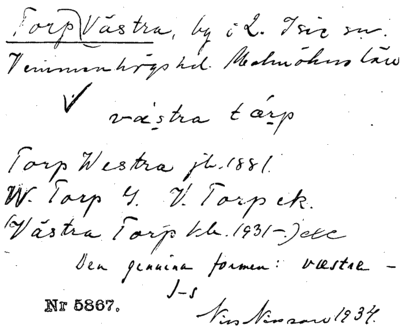 Torp Västra, by i L. Isie sn.
Vemmenhögs hd. Malmöhus län
✓ västra tárp
Torp Westra jb. 1881.
W. Torp G. V. Torp ek.
(Västra Torp kb. 1931-) etc
Den genuina formen: væstra -
Nr 5867.
Nils Nilsson 1934.